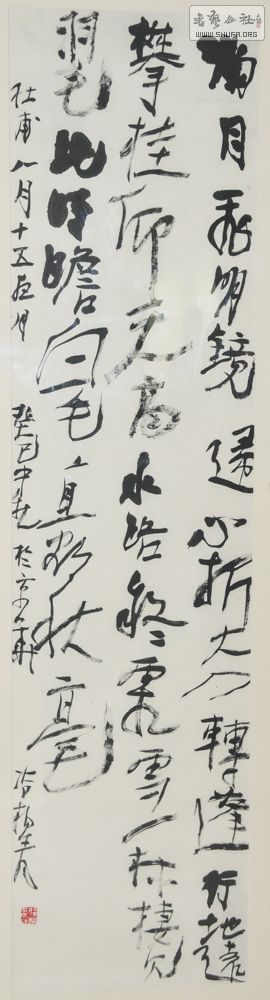 书艺公社
WWW.SHUFA.ORG
滿月飛明鏡 歸心折大刀轉蓬行地遠
攀桂仰天高水路疑霜雪林棲見
羽毛此時瞻白兔直欲秋毫
杜甫八月十五夜月 癸巳中秋於京